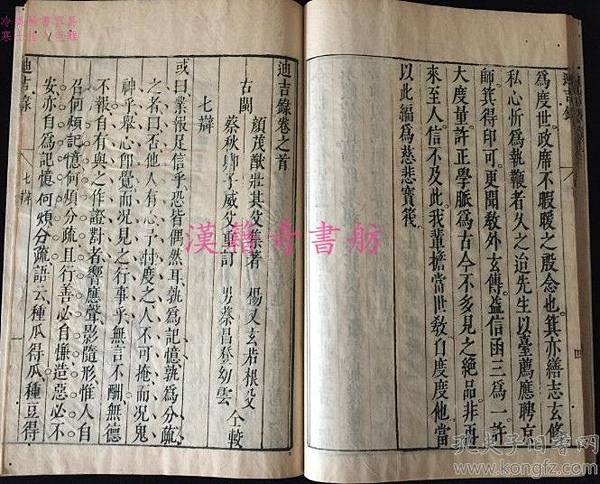 為度世政席不暇暖之殷念也箕亦繕志玄修
私心忻為執鞭者久之迨先生以臺薦應聘京
師箕得印可更聞教外玄傳益信函三為一許
大度量許正學脈為古今不多見之絕品非再
來至人信不及此我輩擔當世教自度度他當
以此編為慈悲寶筏
迪吉錄
四
迪吉錄卷之首
古閩
顏茂猷壯其父集著
楊
玄若根父
蔡秋卿子威父重訂
男蔡昌
幼雲
仝較
七辯
或曰業報足信乎恐皆偶然耳孰為記憶孰為分疏
之者曰否他人有心予忖度之人不可掩而況鬼
神乎舉心即覺而況見之行事乎無言不酬無德
不報自有與之作證對者響應聲影隨形惟人自
召何煩記憶何煩分疏且行善必自慊造惡必不
安亦自為記憶何煩分疏語云種瓜得瓜種豆得
迪吉錄
七辯
漢籍奇書舫
孔夫子旧书网
www.kongfz.com